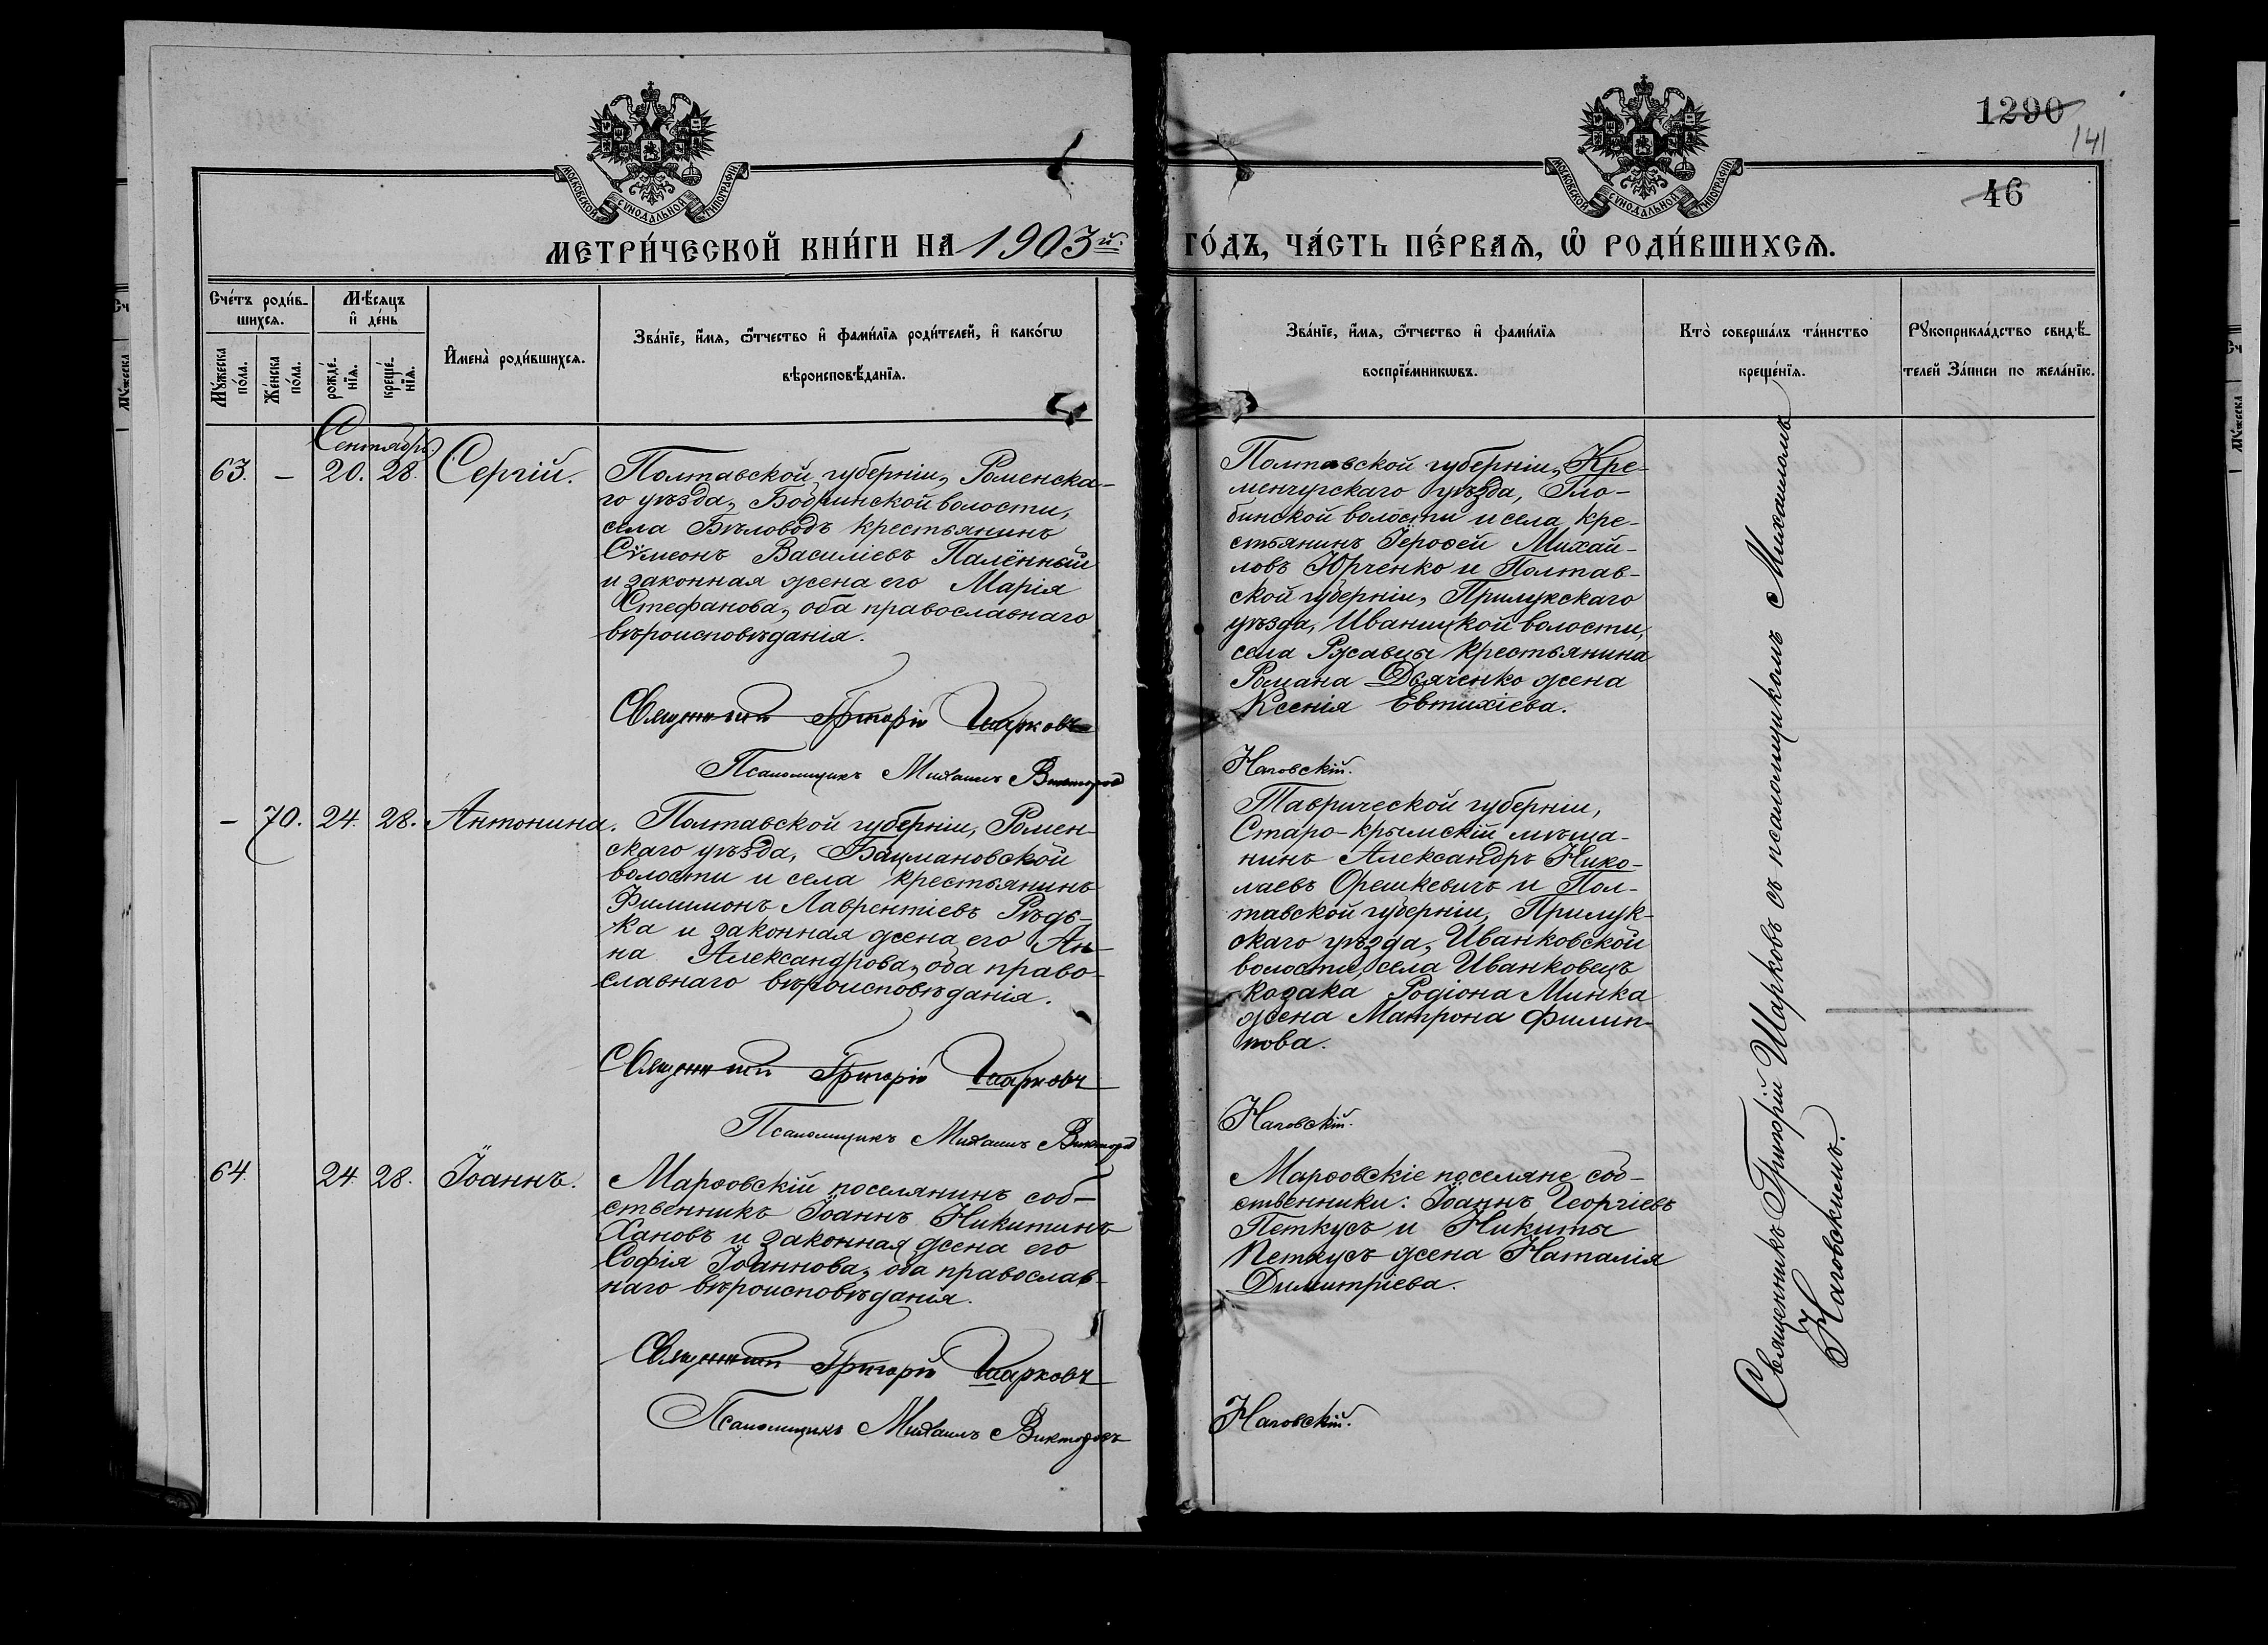 1290
141
46
МОСКОВСКОЙ СѴНОДАЛЬНОЙ ТИПОГРАФІИ
МОСКОВСКОЙ СѴНОДАЛЬНОЙ ТИПОГРАФІИ
МЕТРИ́ЧЕСКОЙ КНИ́ГИ НА 1903й.
ГО́ДЪ, ЧА́СТЬ ПЕ́РВАѦ, Ѽ РОДИ́ВШИХСѦ.
Сче́тъ роди́в-
шихсѧ.
Мꙋ́жеска по́ла.
Же́нска по́ла.
Мѣ́сѧцъ
и҆ де́нь
рожде́-
нїѧ.
креще́-
нїѧ.
И҆мена̀ роди́вшихсѧ.
Зва́нїе, и҆́мѧ, ѻ҆́тчество и҆ фами́лїѧ роди́телей, и҆ како́гѡ
вѣроисповѣ́данїѧ.
Зва́нїе, и҆́мѧ, ѻ҆́тчество и҆ фами́лїѧ
воспрїе́мникѡвъ.
Кто̀ соверша́лъ та́инство
креще́нїѧ.
Рꙋкоприкла́дство свидѣ́-
телей За́писи по жела́нїю.
Сентябрь.
63. — 20. 28. Сергій.
Полтавской губерніи, Роменска-
го уѣзда, Бобринской волости,
села Бѣловодъ крестьянинъ
Сѵмеонъ Василіевъ Палённый
и законная жена его Марія
Стефанова, оба православнаго
вѣроисповѣданія.
Священникъ Григорій Шарковъ
Псаломщикъ Михаилъ Викторов
Полтавской губерніи, Кре-
менчугскаго уѣзда, Гло-
бинской волости и села кре-
стьянинъ Іероѳей Михай-
ловъ Юрченко и Полтав-
ской губерніи, Прилукскаго
уѣзда, Иваницкой волости,
села Русавцы крестьянина
Романа Дьяченко жена
Ксенія Евтихіева.
Наговскій.
— 70. 24. 28. Антонина.
Полтавской губерніи, Ромен-
скаго уѣзда, Бацмановской
волости и села крестьянинъ
Филимонъ Лаврентіевъ Рѣдь-
ка и законная жена его Ан-
на Александрова, оба право-
славнаго вѣроисповѣданія.
Священникъ Григорій Шарковъ
Псаломщикъ Михаилъ Викторов
Таврической губерніи,
Старо-крымскій мѣща-
нинъ Александръ Нико-
лаевъ Орешкевичъ и Пол-
тавской губерніи, Прилук-
скаго уѣзда, Иванковской
волости, села Иванковецъ
козака Родіона Минка
жена Матрона Филип-
пова.
Наговскій.
64. 24. 28. Іоаннъ.
Марѳовскій поселянинъ соб-
ственникъ Іоаннъ Никитинъ
Хановъ и законная жена его
Софія Іоаннова, оба православ-
наго вѣроисповѣданія.
Священникъ Григорій Шарковъ
Псаломщикъ Михаилъ Викторовъ
Марѳовскіе поселяне соб-
ственники: Іоаннъ Георгіевъ
Петкусъ и Никиты
Петкусъ жена Наталія
Димитріева.
Наговскій.
Священникъ Григорій Шарковъ съ псаломщикомъ Михаиломъ
Наговскимъ.